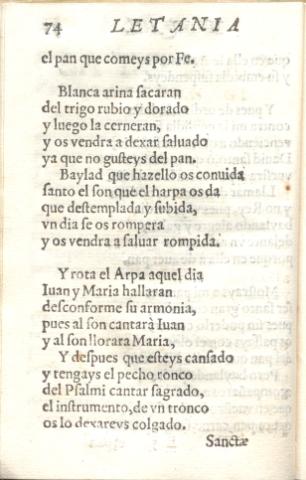 74 LETANIA
el pan que comeys por Fe.
Blanca arina sacaran
del trigo rubio y dorado
y luego la cerneran,
y os vendra a dexar saluado
ya que no gusteys del pan.
Baylad que hazello os conuida
santo el son que el harpa os da
que destemplada y subida,
vn dia se os rompera
y os vendra a saluar rompida.
Y rota el Arpa aquel dia
Iuan y Maria hallaran
desconforme su armonia,
pues al son cantarà Iuan
y al son llorara Maria,
Y despues que esteys cansado
y tengays el pecho ronco
del Psalmi cantar sagrado,
el instrumento, de vn tronco
os lo dexareys colgado.
Sanctæ